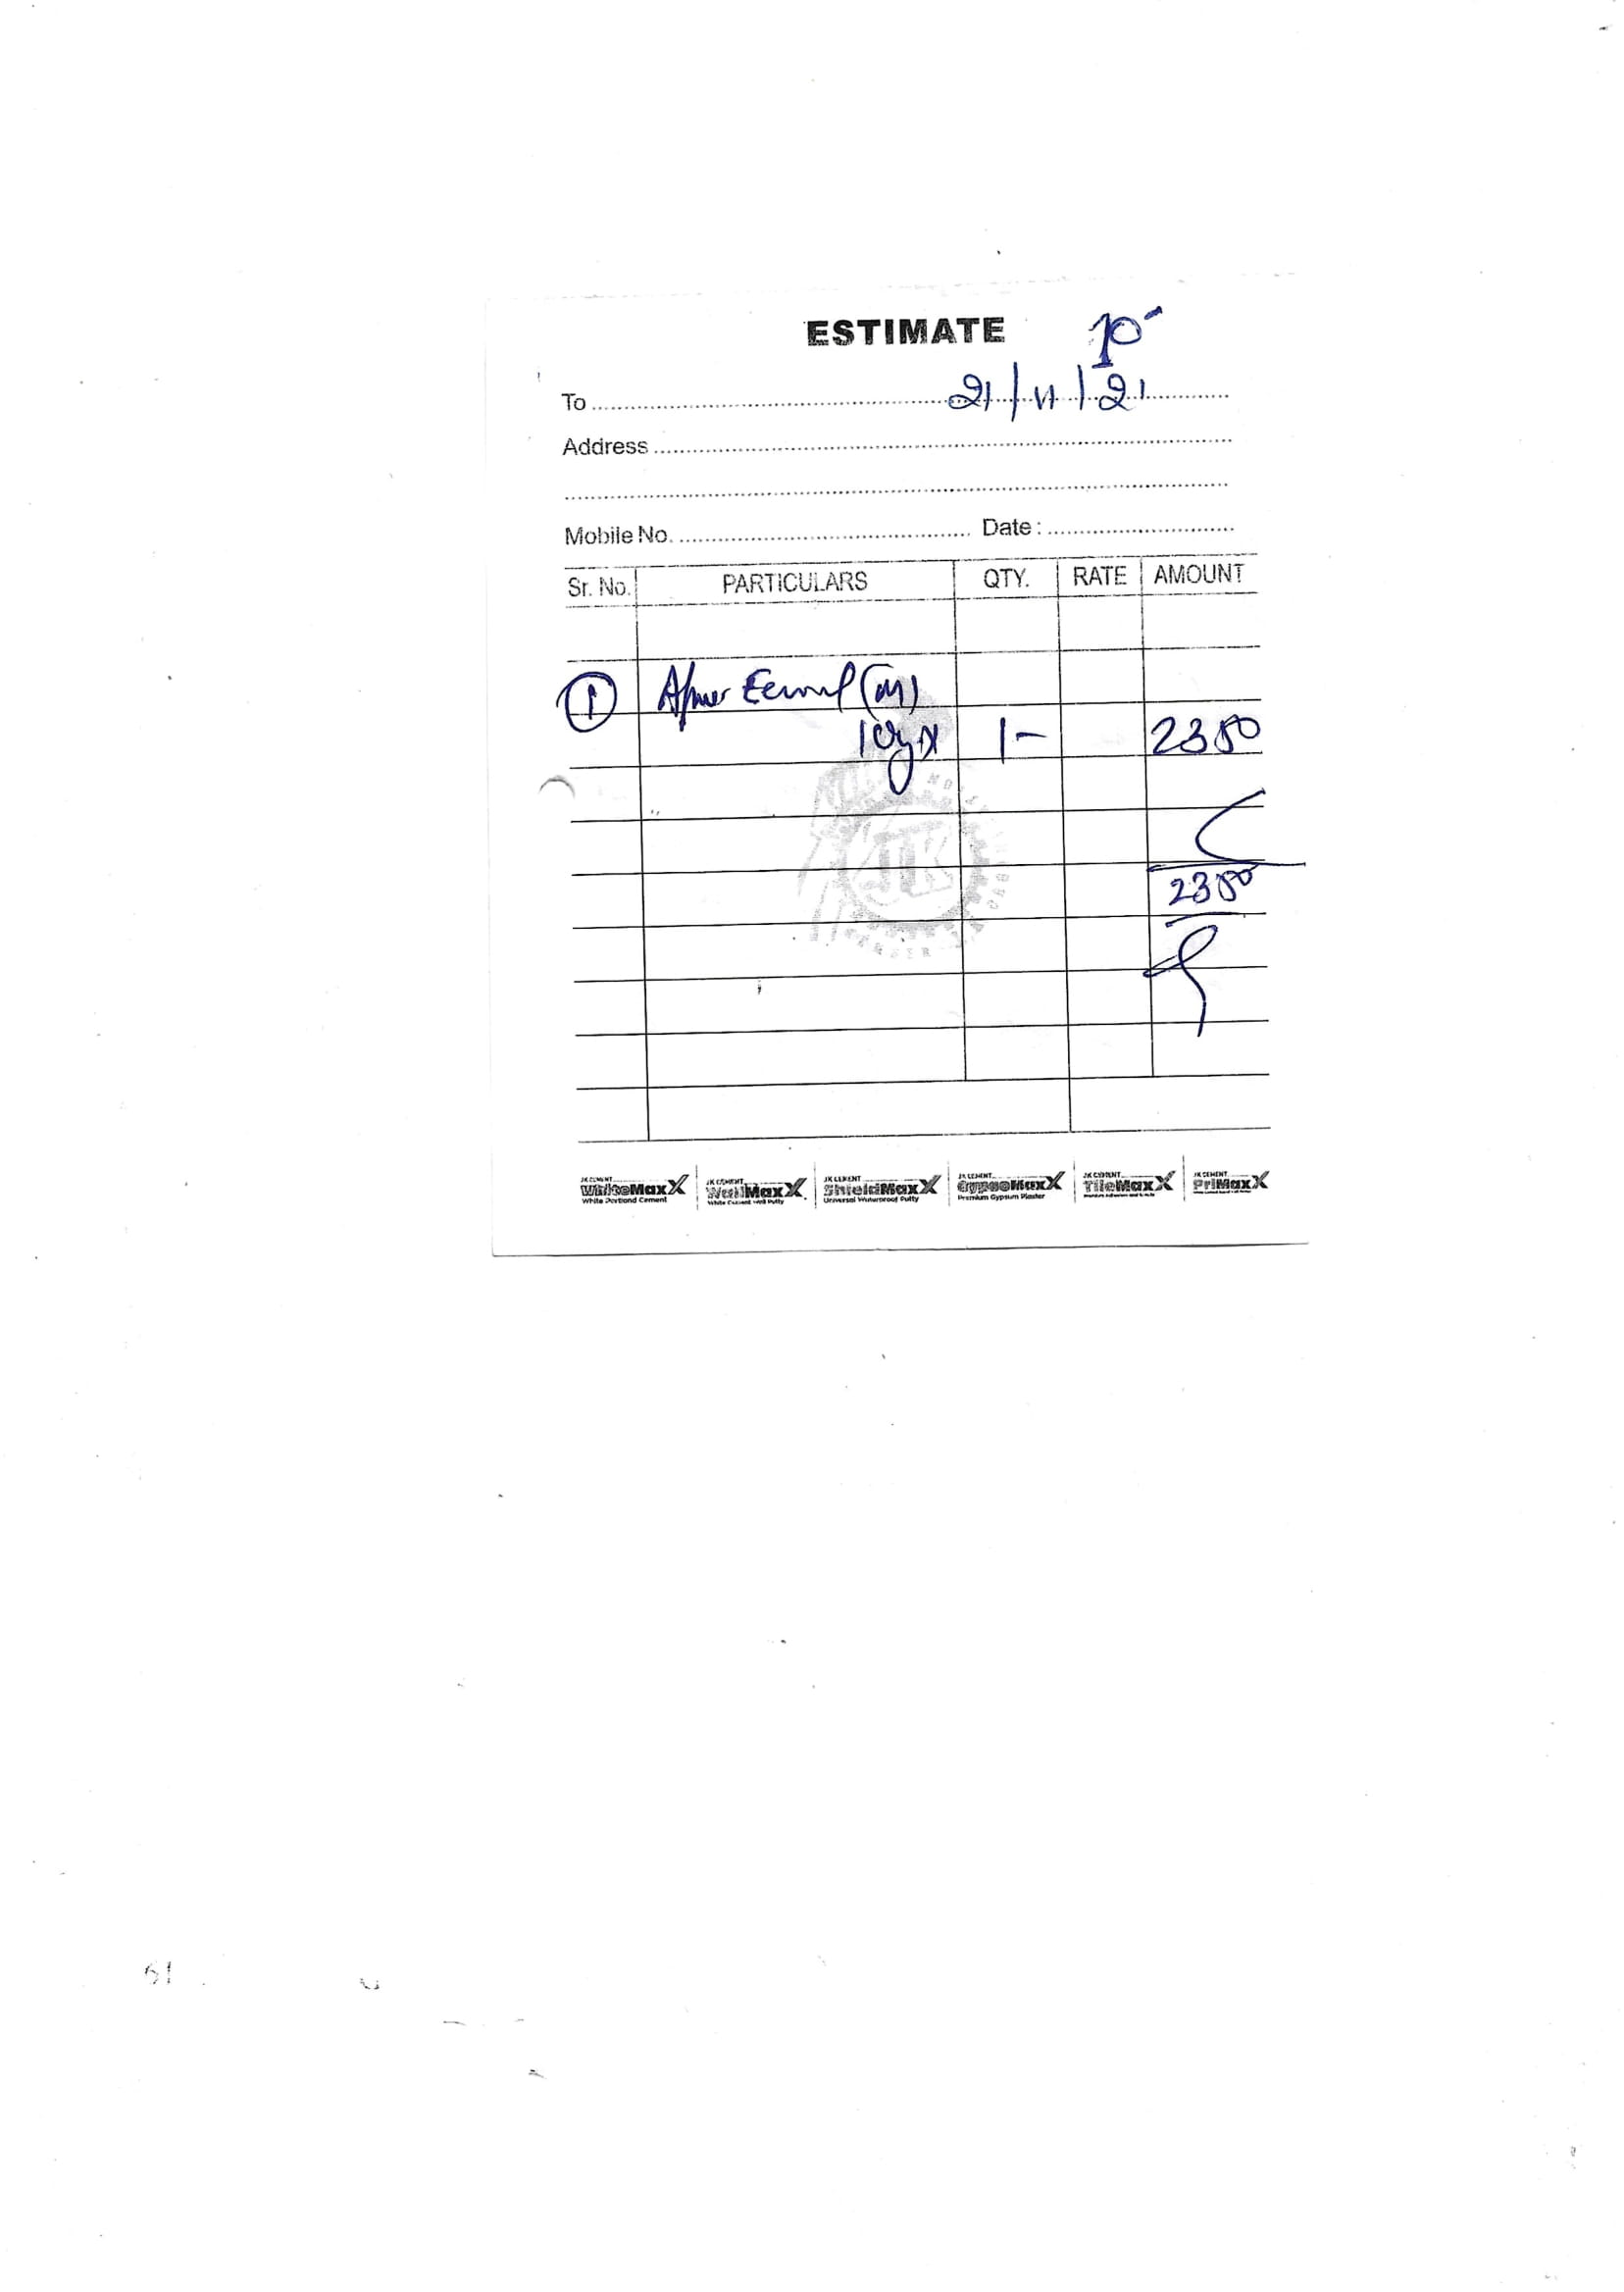 ESTIMATE 10
21/11/21
To
Address
Mobile No. Date :
Sr. No. PARTICULARS QTY. RATE AMOUNT
1 (M)
1 - 2350
2350
JK CEMENT WhiteMaxX White Portland Cement
JK CEMENT WallMaxX White Cement Wall Putty
JK CEMENT ShieldMaxX Universal Waterproof Putty
JK CEMENT GypsoMaxX Premium Gypsum Plaster
JK CEMENT TileMaxX
JK CEMENT PriMaxX